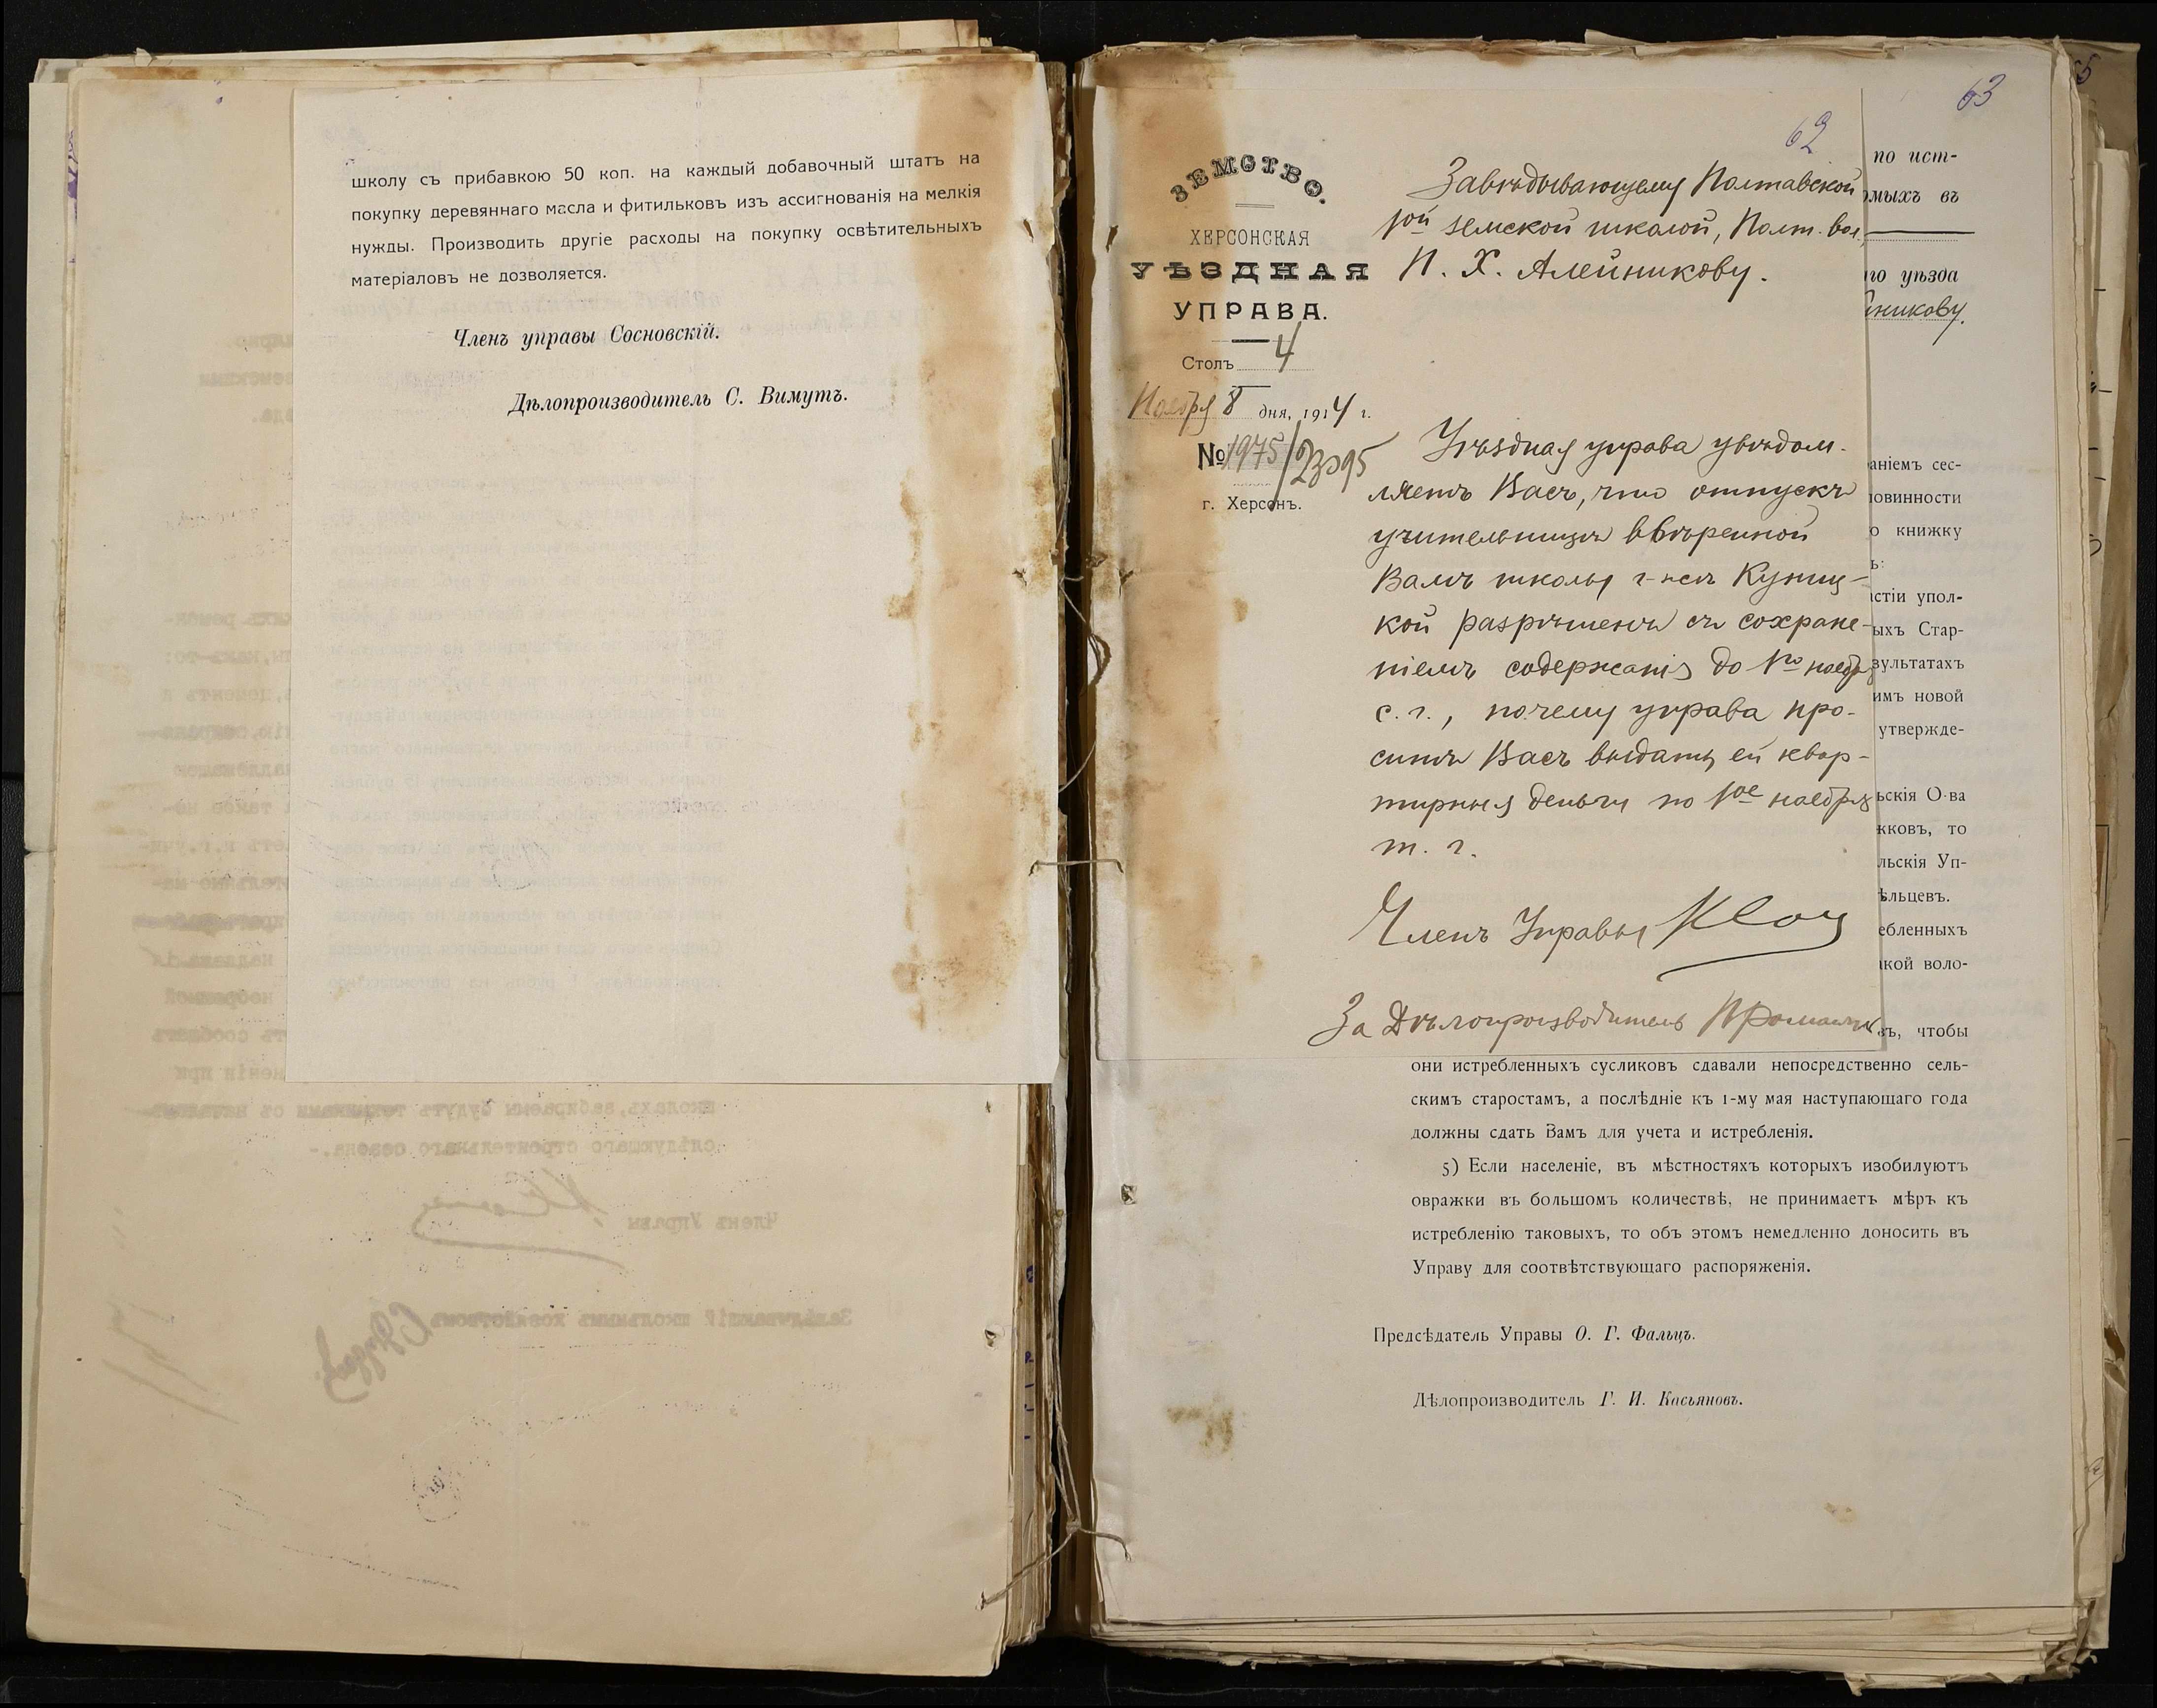 школу съ прибавкою 50 коп. на каждый добавочный штатъ на
покупку деревяннаго масла и фитильковъ изъ ассигнованія на мелкія
нужды. Производить другіе расходы на покупку освѣтительныхъ
матеріаловъ не дозволяется.
Членъ управы Сосновскій.
Дѣлопроизводитель С. Вимутъ.
63
62
ЗЕМСТВО.
ХЕРСОНСКАЯ
УѢЗДНАЯ
УПРАВА.
Столъ 4
Ноября 8 дня, 1914 г.
№ 1975/23095
г. Херсонъ.
Завѣдывающему Полтавской
1ой земской школой, Полт. вол.
П. Х. Алейникову.
Уѣздная управа увѣдом-
ляетъ Васъ, что отпускъ
учительницѣ ввѣренной
Вамъ школы г-жѣ Куниц-
кой разрѣшенъ съ сохране-
ніемъ содержанія до 1го ноября
с. г., почему управа про-
ситъ Васъ выдать ей квар-
тирныя деньги по 1ое ноября
т. г.
Членъ Управы
За Дѣлопроизводитель
по ист-
омыхъ въ
го уѣзда
йникову.
аніемъ сес-
овинности
о книжку
ь:
стіи упол-
ыхъ Стар-
зультатахъ
имъ новой
утвержде-
ьскія О-ва
жковъ, то
льскія Уп-
ѣльцевъ.
ебленныхъ
кой воло-
въ, чтобы
они истребленныхъ сусликовъ сдавали непосредственно сель-
скимъ старостамъ, а послѣдніе къ 1-му мая наступающаго года
должны сдать Вамъ для учета и истребленія.
5) Если населеніе, въ мѣстностяхъ которыхъ изобилуютъ
овражки въ большомъ количествѣ, не принимаетъ мѣръ къ
истребленію таковыхъ, то объ этомъ немедленно доносить въ
Управу для соотвѣтствующаго распоряженія.
Предсѣдатель Управы О. Г. Фальцъ.
Дѣлопроизводитель Г. И. Касьяновъ.